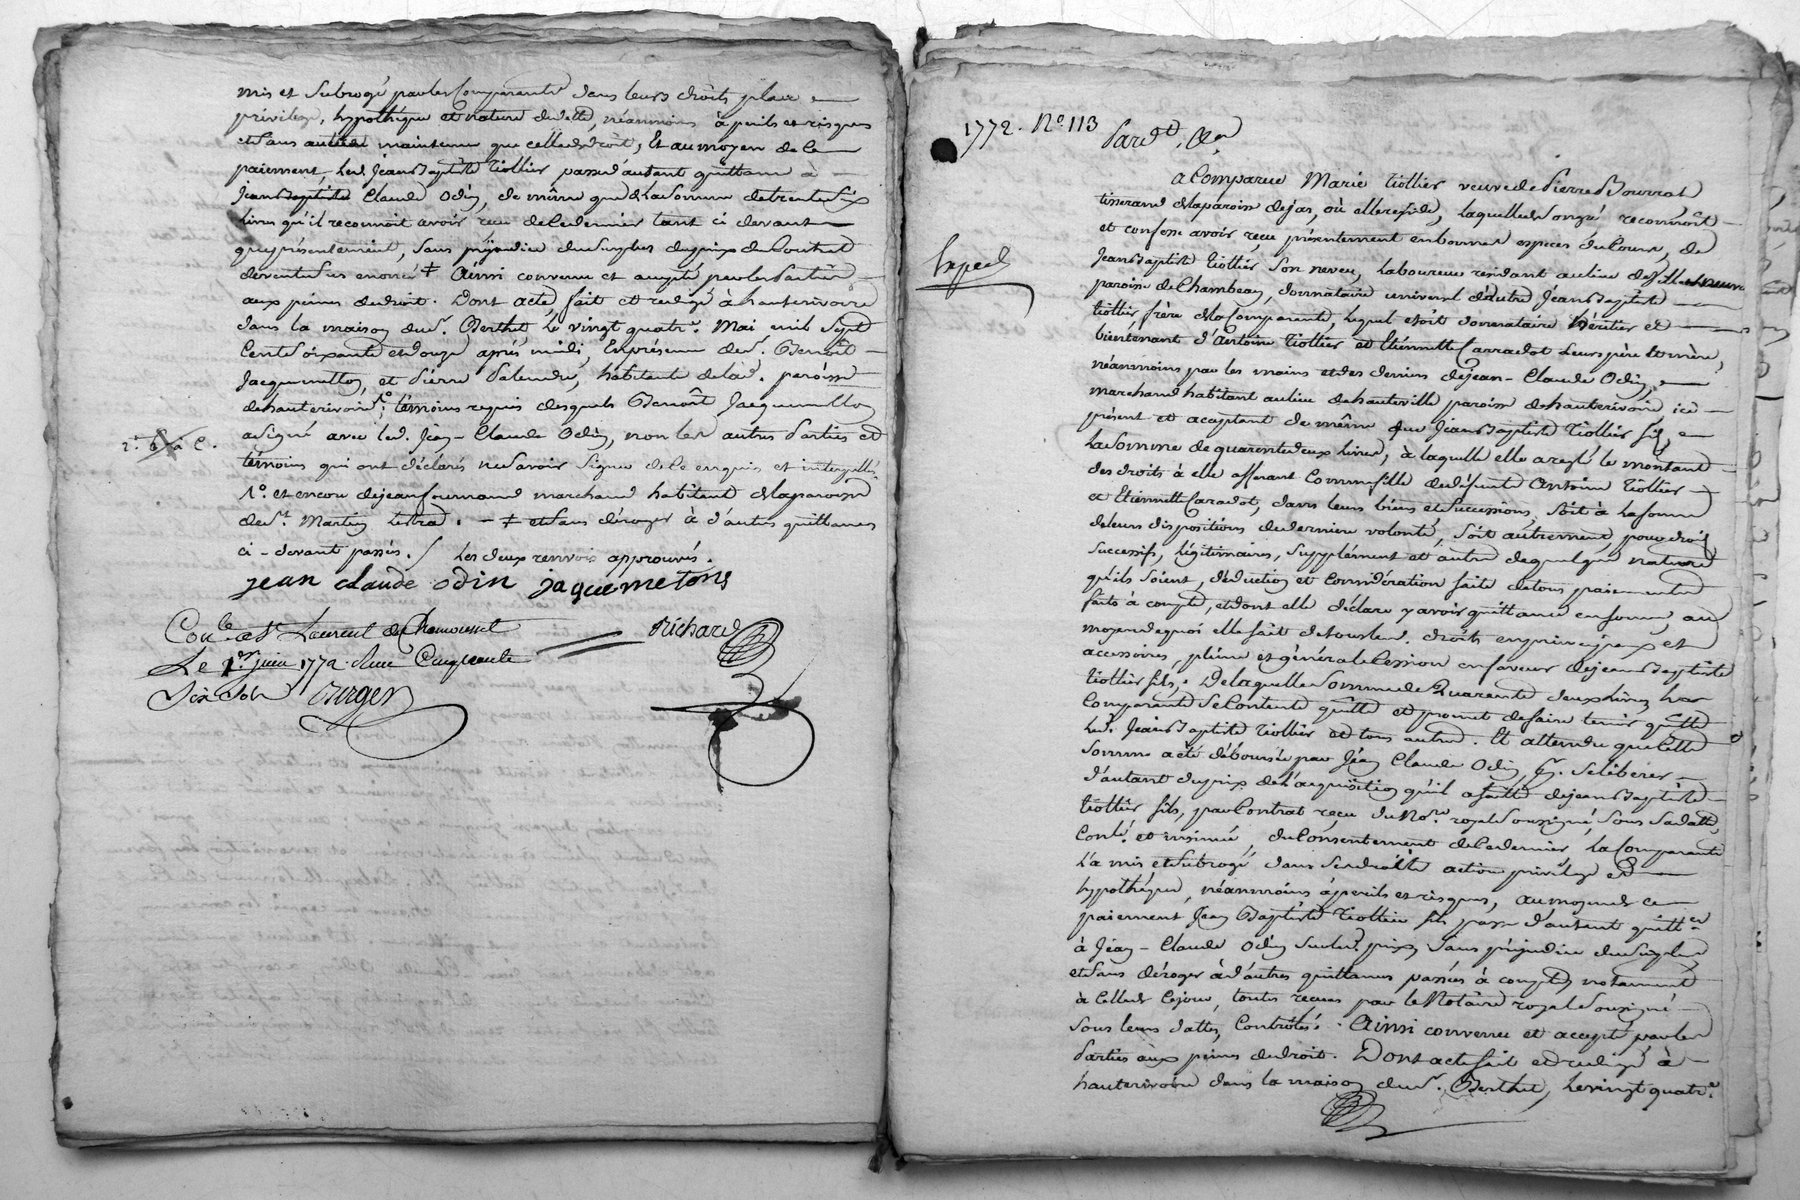 mis et subrogé par les Comparants dans leurs droits place
privilege, hypothéque et nature de dette, néanmoins à perils et risques
et sans autre maintenue que celle de droit, Et au moyen de ce
paiement, led. Jean Baptiste Tiollier passe d'autant quittance à
Jean Baptiste Claude Odin, de même que de la somme de trente six
livres qu'il reconnoit avoir reçu de ce dernier tant ci devant
que présentement, sans préjudice du surplus du prix du Contrat
de vente sus énoncé ‡ Ainsi convenu et accepté par les Parties
aux peines de droit. Dont acte, fait et redigé à hauterivoire
dans la maison du sr. Berthet le vingt quatre. Mai mil sept
Cent soixante et douze après midi, En présence de sr. Benoît
Jacquemetton, et Pierre habitants de lad. paroisse
de hauterivoire, 1o témoins requis desquels Benoît Jacquemetton
a signé avec led. Jean-Claude Odin, non les autres Parties et
témoins qui ont déclarés ne savoir signer de ce enquis et interpellés
1o. et encore de jean fournand marchand habitant de la paroisse
de st. Martin Lestra. - ‡ et sans déroger à d'autres quittances
ci-devant passées. / les deux renvois approuvés.
jean claude odin jaquemetons
Conlé a St Laurent de Chamousset
Richard
Le 1er juin 1772. Reçu
dix sols
1772. No. 113
Pardt. &a
A Comparue Marie Tiollier veuve de Pierre Bourrat
tisserand de la paroisse de jas, où elle reside, laquelle de son gré reconnoît
et confesse avoir reçu présentement en bonnes espèces du Cours, de
Jean Baptiste Tiollier son neveu, Laboureur residant au lieu de Villeneuve
paroisse de Chambeon, donnataire universel d'autre Jean Baptiste
tiollier frère de la Comparante, lequel etoit donnataire héritier et
bientenant d'Antoine Tiollier et Etiennette Carradot leurs père et mère,
néanmoins par les mains et des deniers de jean-Claude Odin,
marchand habitant au lieu de hauteville paroisse de hauterivoire ici
présent et acceptant de même que Jean Baptiste Tiollier fils,
la somme de quarente deux livres, à laquelle elle a reglé le montant
des droits à elle afferant Comme fille de défunt Antoine Tiollier
et Etiennette Caradot, dans leurs biens et successions, soit à la forme
de leurs dispositions de derniere volonté, soit autrement, pour droits
successifs, légitimaires, supplément et autre de quelque nature
qu'ils soient, déduction et considération faite de tous paiements
faits à compte, et dont elle déclare y avoir quittance en forme, au
moyen de quoi elle fait de tous lesd. droits en principaux et
accessoires, pleine et générale Cession en faveur de jean Baptiste
tiollier fils. De laquelle somme de Quarente deux livres, lad.
Comparante se Contente quitte et promet de faire tenir quitte
led. Jean Baptiste Tiollier et tous autres. Et attendu que cette
somme a été déboursée par Jean Claude Odin, pr. se libérer
d'autant du prix de l'acquisition qu'il a faite de jean Baptiste
tiollier fils, par Contrat reçu du Nore. royal soussigné, sous sa datte,
Conlé. et insinué, du Consentement de ce dernier la Comparante
l'a mis et subrogé dans ses droits action privilege et
hypothéque, néanmoins à perils et risques, au moyen de ce
paiement Jean Baptiste Tiollier fils passe d'autant quittce
à Jean-Claude Odin sur led. prix, sans préjudice du surplus
et sans déroger à d'autres quittances passées à compte, notamment
à Celle de Ce jour, toutes reçues par le Notaire royal soussigné
sous leurs dattes, Contrôlées. Ainsi convenu et accepté par les
Parties aux peines de droit. Dont acte fait et redigé à
hauterivoire dans la maison du sr. Berthet, le vingt quatre